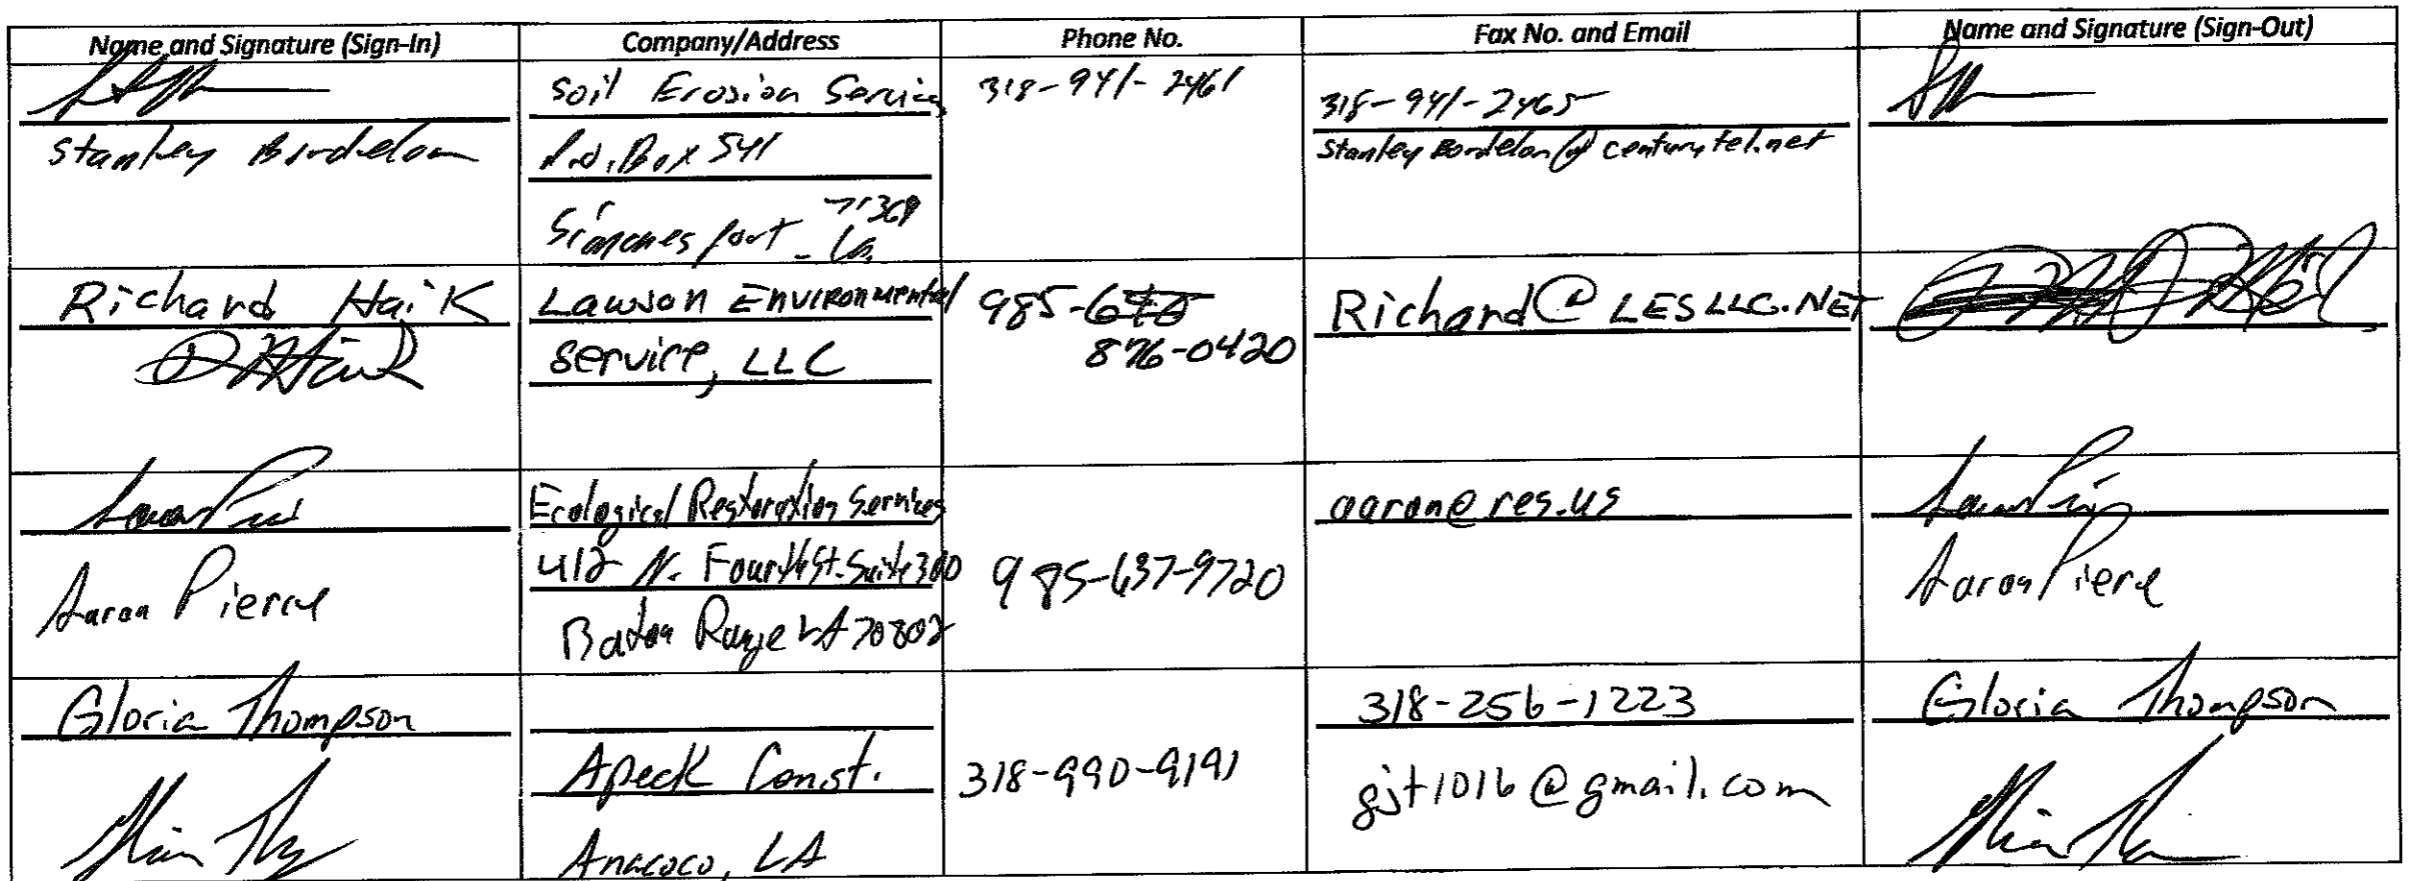 Name and Signature (Sign-In)
Company/Address
Phone No.
Fax No. and Email
Name and Signature (Sign-Out)
Stanley Bordelon
Soil Erosion Service
P.O. Box 541
Simmesport La. 71369
318-941-2461
318-941-2465
StanleyBordelon@centurytel.net
Richard Haik
Lawson Environmental
Service, LLC
985-
876-0420
Richard@LESLLC.NET
Aaron Pierce
Ecological Restoration Services
412 N. Fourth St. Suite 300
Baton Rouge LA 70802
985-637-9720
aaron@res.us
Aaron Pierce
Gloria Thompson
Apeck Const.
Anacoco, LA
318-990-9191
318-256-1223
gjt1016@gmail.com
Gloria Thompson